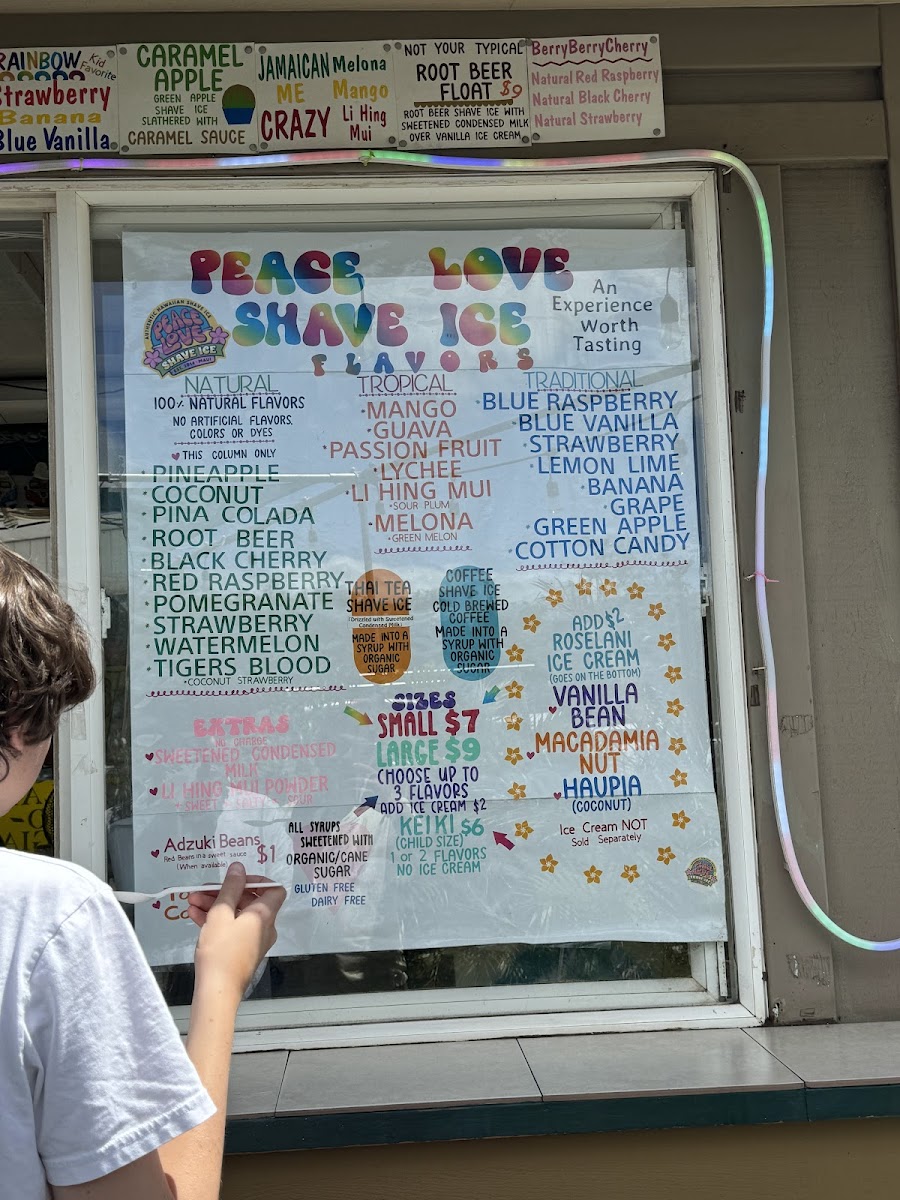 RAINBOW
Kid
Favorite
Strawberry
Banana
Blue Vanilla
CARAMEL
APPLE
GREEN APPLE
SHAVE ICE
SLATHERED WITH
CARAMEL SAUCE
JAMAICAN
ME
CRAZY
Melona
Mango
Li Hing
Mui
NOT YOUR TYPICAL
ROOT BEER
FLOAT $9
ROOT BEER SHAVE ICE WITH
SWEETENED CONDENSED MILK
OVER VANILLA ICE CREAM
BerryBerryCherry
Natural Red Raspberry
Natural Black Cherry
Natural Strawberry
PEACE LOVE
SHAVE ICE
FLAVORS
An
Experience
Worth
Tasting
AUTHENTIC HAWAIIAN SHAVE ICE
PEACE
LOVE
SHAVE ICE
NATURAL
100% NATURAL FLAVORS
NO ARTIFICIAL FLAVORS,
COLORS OR DYES
THIS COLUMN ONLY
·PINEAPPLE
·COCONUT
·PINA COLADA
·ROOT BEER
·BLACK CHERRY
·RED RASPBERRY
·POMEGRANATE
·STRAWBERRY
·WATERMELON
·TIGERS BLOOD
·COCONUT STRAWBERRY
TROPICAL
·MANGO
·GUAVA
·PASSION FRUIT
·LYCHEE
·LI HING MUI
·SOUR PLUM
·MELONA
·GREEN MELON
TRADITIONAL
·BLUE RASPBERRY
·BLUE VANILLA
·STRAWBERRY
·LEMON LIME
·BANANA
·GRAPE
·GREEN APPLE
·COTTON CANDY
THAI TEA
SHAVE ICE
(Drizzled with Sweetened
Condensed Milk)
MADE INTO A
SYRUP WITH
ORGANIC
SUGAR
COFFEE
SHAVE ICE
COLD BREWED
COFFEE
MADE INTO A
SYRUP WITH
ORGANIC
SUGAR
ADD $2
ROSELANI
ICE CREAM
(GOES ON THE BOTTOM)
VANILLA
BEAN
MACADAMIA
NUT
HAUPIA
(COCONUT)
Ice Cream NOT
Sold Separately
SIZES
SMALL $7
LARGE $9
CHOOSE UP TO
3 FLAVORS
ADD ICE CREAM $2
KEIKI $6
(CHILD SIZE)
1 or 2 FLAVORS
NO ICE CREAM
EXTRAS
NO CHARGE
SWEETENED CONDENSED
MILK
LI HING MUI POWDER
SWEET SALTY SOUR
Adzuki Beans $1
Red Beans in a sweet sauce
(When available)
ALL SYRUPS
SWEETENED WITH
ORGANIC/CANE
SUGAR
GLUTEN FREE
DAIRY FREE